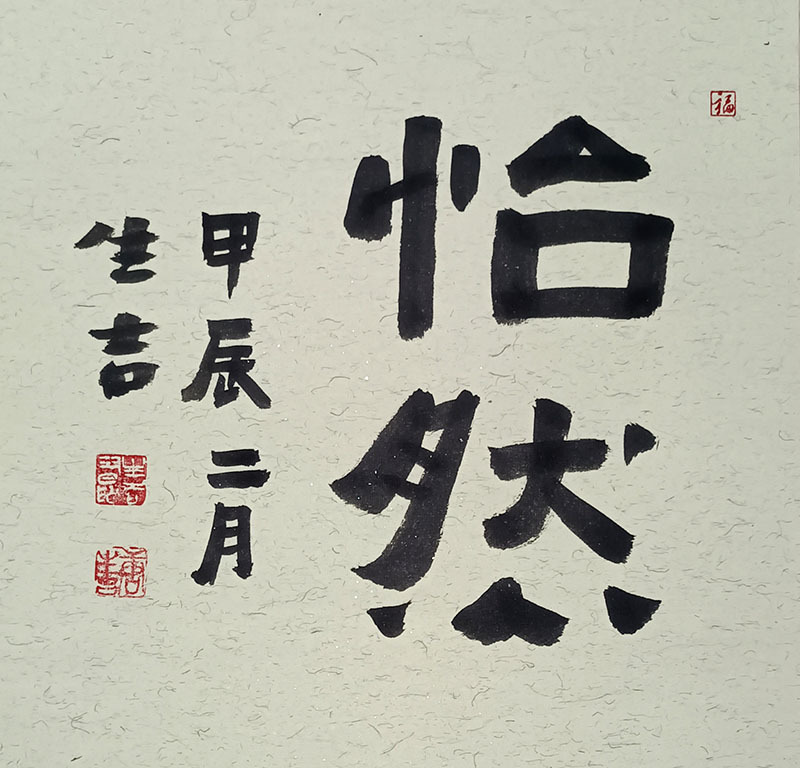 福
怡然
甲辰二月
生吉